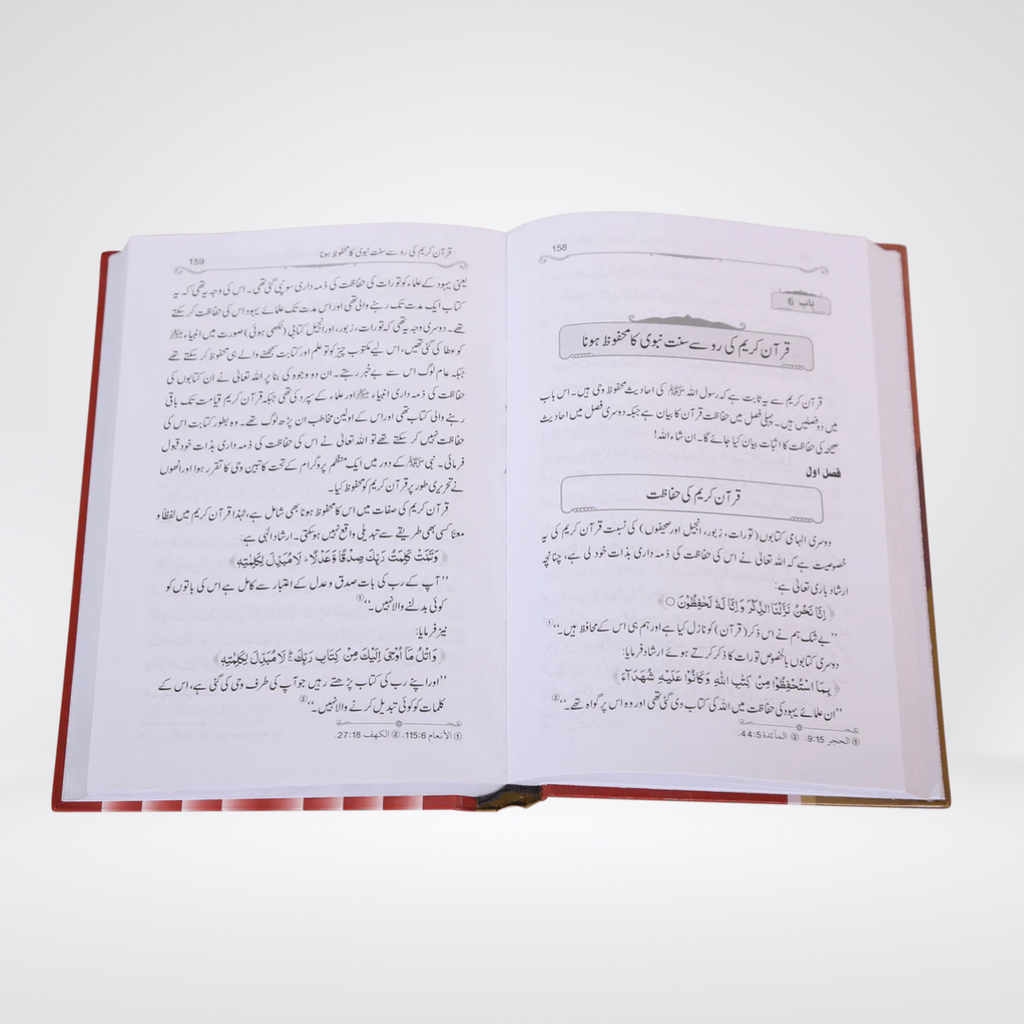 158
باب 6
قرآن کریم کی رو سے سنت نبوی کا محفوظ ہونا
قرآن کریم سے یہ ثابت ہے کہ رسول اللہ ﷺ کی احادیث محفوظ وحی ہیں۔ اس باب
میں دو فصلیں ہیں۔ پہلی فصل میں حفاظت قرآن کا بیان ہے جبکہ دوسری فصل میں احادیث
صحیحہ کی حفاظت کا اثبات بیان کیا جائے گا۔ ان شاء اللہ!
فصل اول
قرآن کریم کی حفاظت
دوسری الہامی کتابوں (تورات، زبور، انجیل اور صحیفوں) کی نسبت قرآن کریم کی یہ
خصوصیت ہے کہ اللہ تعالیٰ نے اس کی حفاظت کی ذمہ داری بذات خود لی ہے، چنانچہ
ارشاد باری تعالیٰ ہے:
﴿إِنَّا نَحْنُ نَزَّلْنَا الذِّكْرَ وَإِنَّا لَهُ لَحٰفِظُوْنَ ○﴾
’’بے شک ہم نے اس ذکر (قرآن) کو نازل کیا ہے اور ہم ہی اس کے محافظ ہیں۔‘‘①
دوسری کتابوں بالخصوص تورات کا ذکر کرتے ہوئے ارشاد فرمایا:
﴿بِمَا اسْتُحْفِظُوْا مِنْ كِتٰبِ اللّٰهِ وَكَانُوْا عَلَيْهِ شُهَدَآءَ﴾
’’ان علمائے یہود کی حفاظت میں اللہ کی کتاب دی گئی تھی اور وہ اس پر گواہ تھے۔‘‘②
① الحجر 9:15. ② المآئدة 44:5.
قرآن کریم کی رو سے سنت نبوی کا محفوظ ہونا 159
یعنی یہود کے علماء کو تورات کی حفاظت کی ذمہ داری سونپی گئی تھی۔ اس کی وجہ یہ تھی کہ یہ
کتاب ایک مدت تک رہنے والی تھی اور اس مدت تک علمائے یہود اس کی حفاظت کر سکتے
تھے۔ دوسری وجہ یہ تھی کہ تورات، زبور، اور انجیل کتابی (لکھی ہوئی) صورت میں انبیاء ﷺ
کو عطا کی گئی تھیں، اس لیے مکتوب چیز کو تو علم اور کتابت سمجھنے والے ہی محفوظ کر سکتے تھے
جبکہ عام لوگ اس سے بے خبر رہتے۔ ان دو وجوہ کی بنا پر اللہ تعالیٰ نے ان کتابوں کی
حفاظت کی ذمہ داری انبیاء ﷺ اور علماء کے سپرد کی تھی جبکہ قرآن کریم قیامت تک باقی
رہنے والی کتاب تھی اور اس کے اولین مخاطب ان پڑھ لوگ تھے۔ وہ بطور کتابت اس کی
حفاظت نہیں کر سکتے تھے تو اللہ تعالیٰ نے اس کی حفاظت کی ذمہ داری بذات خود قبول
فرمائی۔ نبی ﷺ کے دور میں ایک منظم پروگرام کے تحت کاتبین وحی کا تقرر ہوا اور انھوں
نے تحریری طور پر قرآن کریم کو محفوظ کیا۔
قرآن کریم کی صفات میں اس کا محفوظ ہونا بھی شامل ہے، لہٰذا قرآن کریم میں لفظاً و
معناً کسی بھی طریقے سے تبدیلی واقع نہیں ہو سکتی۔ ارشاد الٰہی ہے:
﴿وَتَمَّتْ كَلِمَتُ رَبِّكَ صِدْقًا وَّعَدْلًا ۚ لَا مُبَدِّلَ لِكَلِمٰتِهٖ﴾
’’آپ کے رب کی بات صدق و عدل کے اعتبار سے کامل ہے اس کی باتوں کو
کوئی بدلنے والا نہیں۔‘‘①
نیز فرمایا:
﴿وَاتْلُ مَآ اُوْحِيَ اِلَيْكَ مِنْ كِتَابِ رَبِّكَ ۚ لَا مُبَدِّلَ لِكَلِمٰتِهٖ﴾
’’اور اپنے رب کی کتاب پڑھتے رہیں جو آپ کی طرف وحی کی گئی ہے، اس کے
کلمات کو کوئی تبدیل کرنے والا نہیں۔‘‘②
① الأنعام 115:6. ② الكهف 27:18.